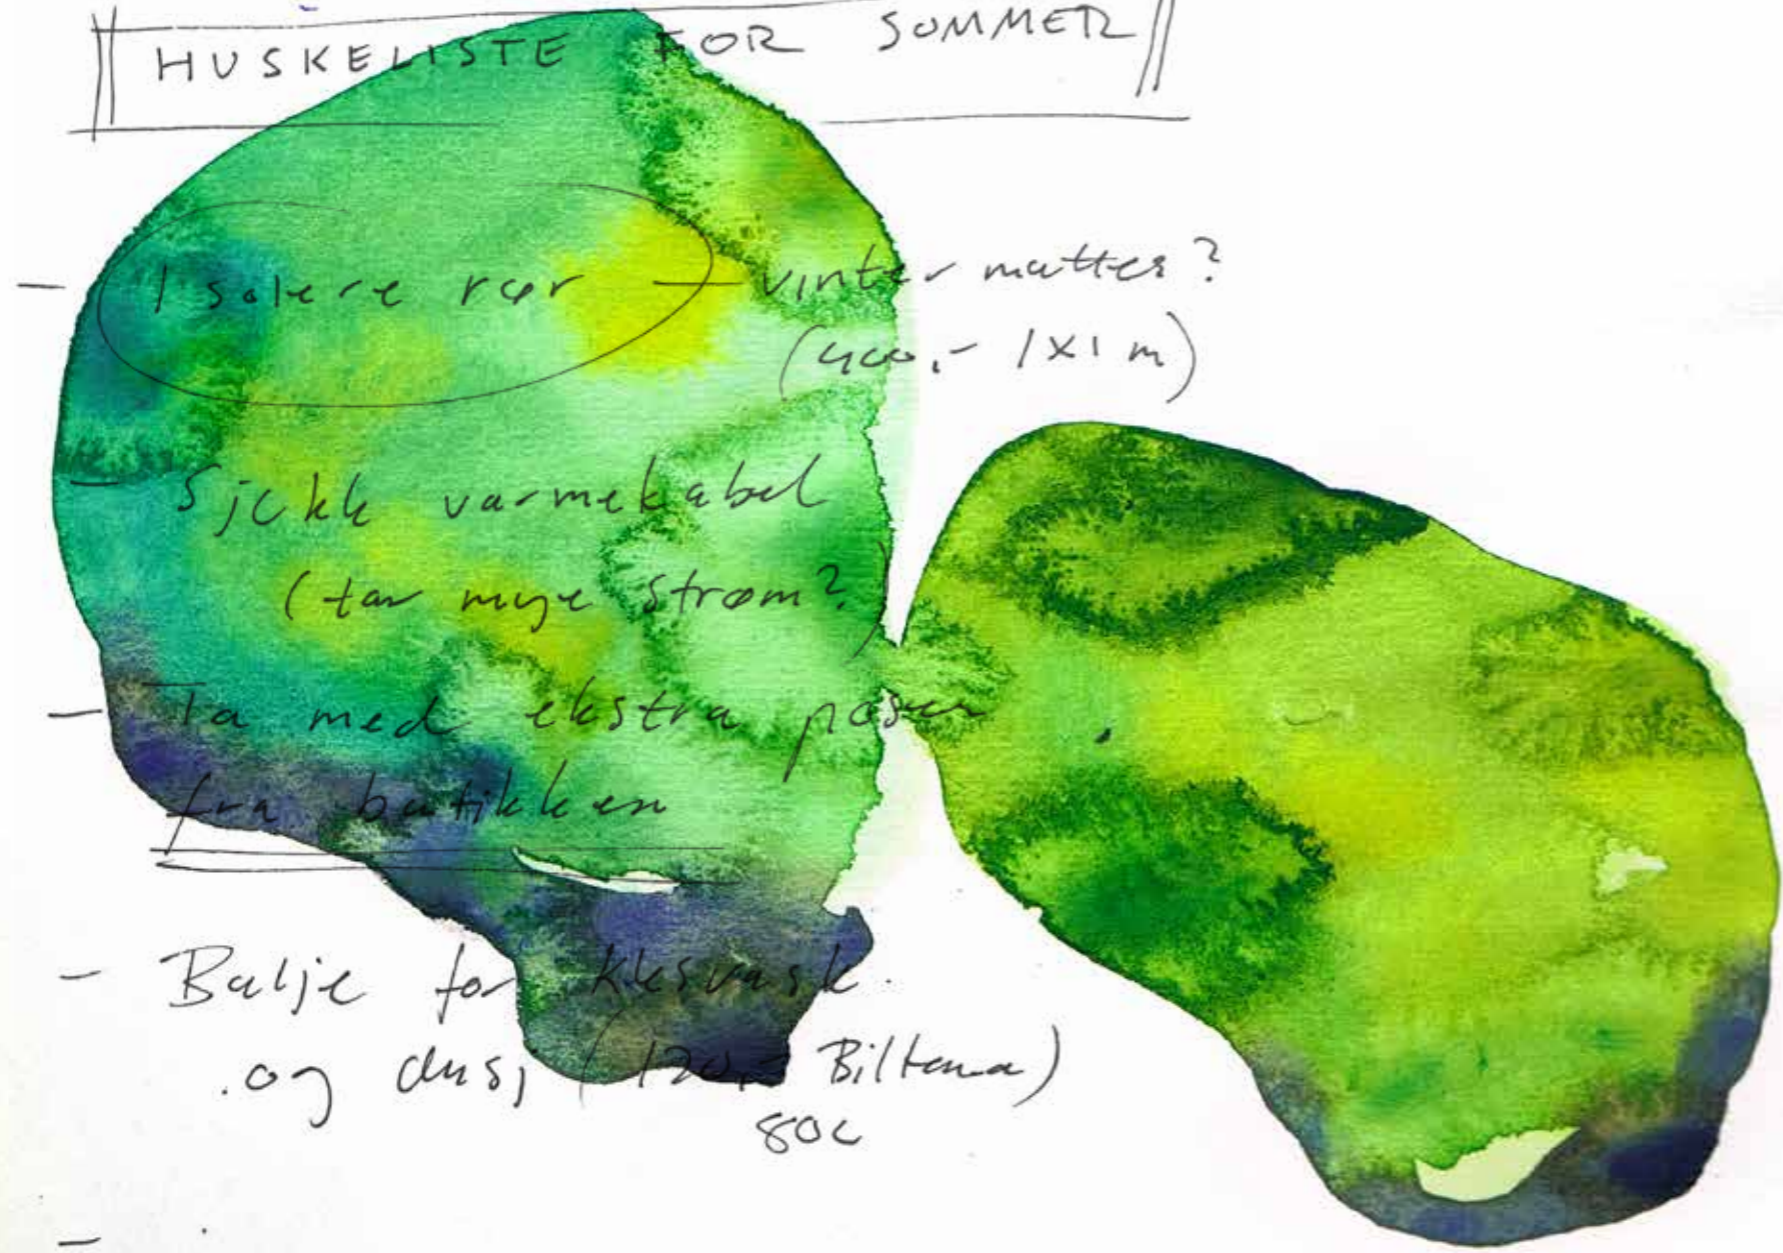 HUSKELISTE FOR SOMMER
- Isolere rør — vintermatter?
(400,- 1x1 m)
- Sjekk varmekabel
(tar mye strøm?)
- Ta med ekstra poser
fra butikken
- Balje for klesvask.
og dusj (120,- Biltema)
80L
-